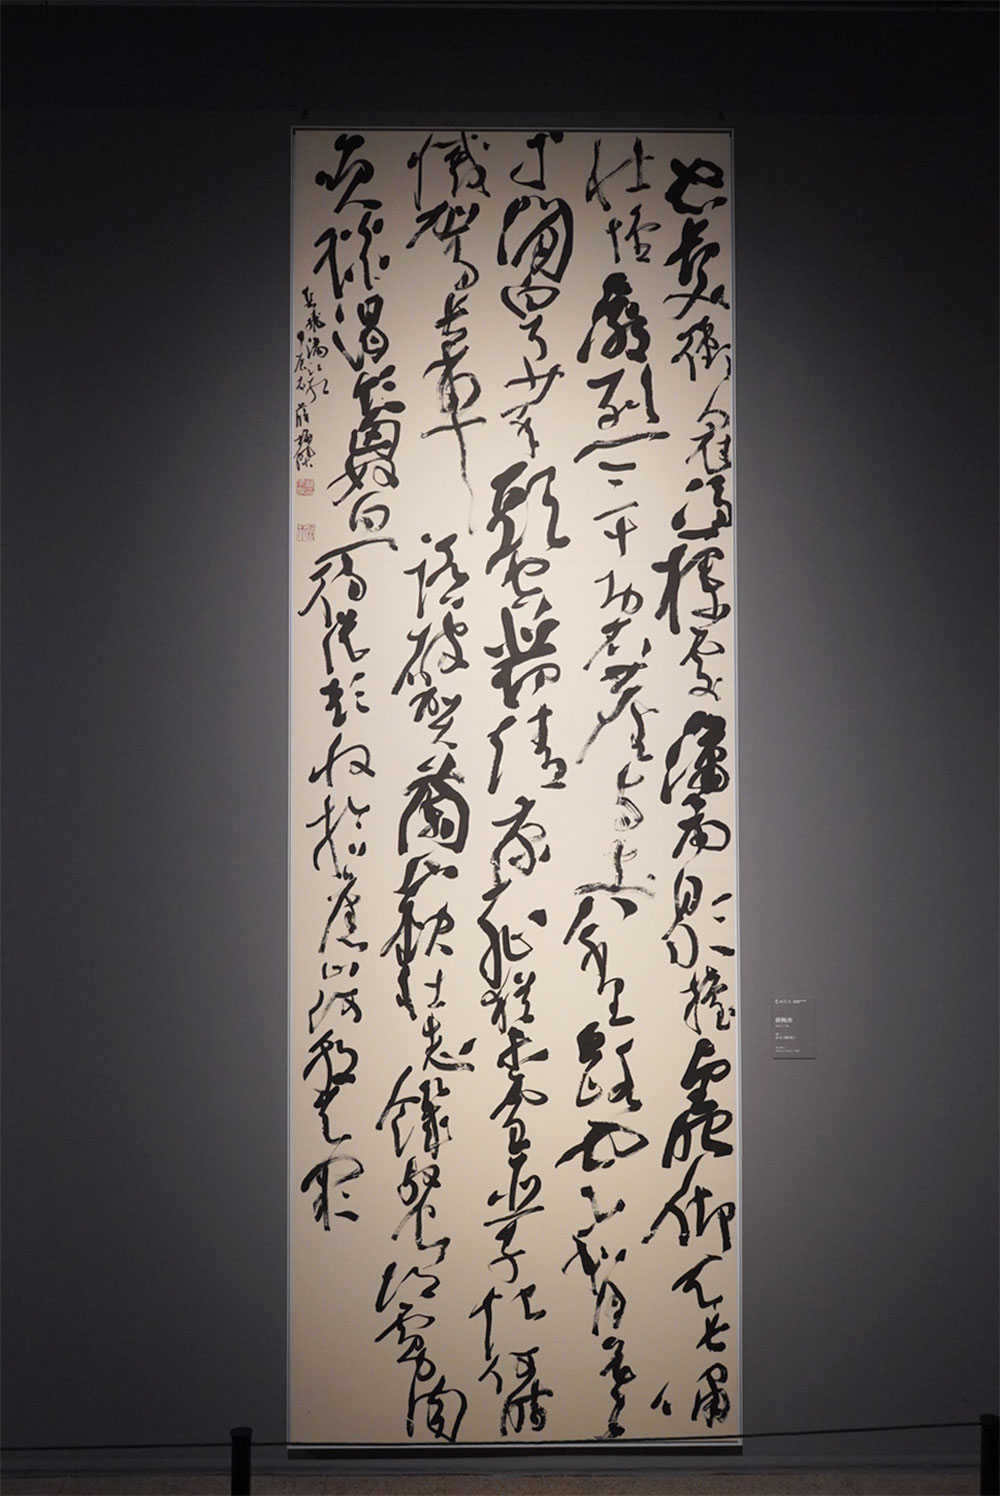 怒髮衝冠憑欄處瀟雨歇擡望眼仰天長嘯
壯懷激烈三十功名塵與土八千里路雲和月莫
等閒白了少年頭空悲切靖康恥猶未雪臣子恨何時
滅駕長車踏破賀蘭山缺壯志飢餐胡虜肉
笑談渴飲匈奴血待從頭收拾舊山河朝天闕
岳飛滿江紅